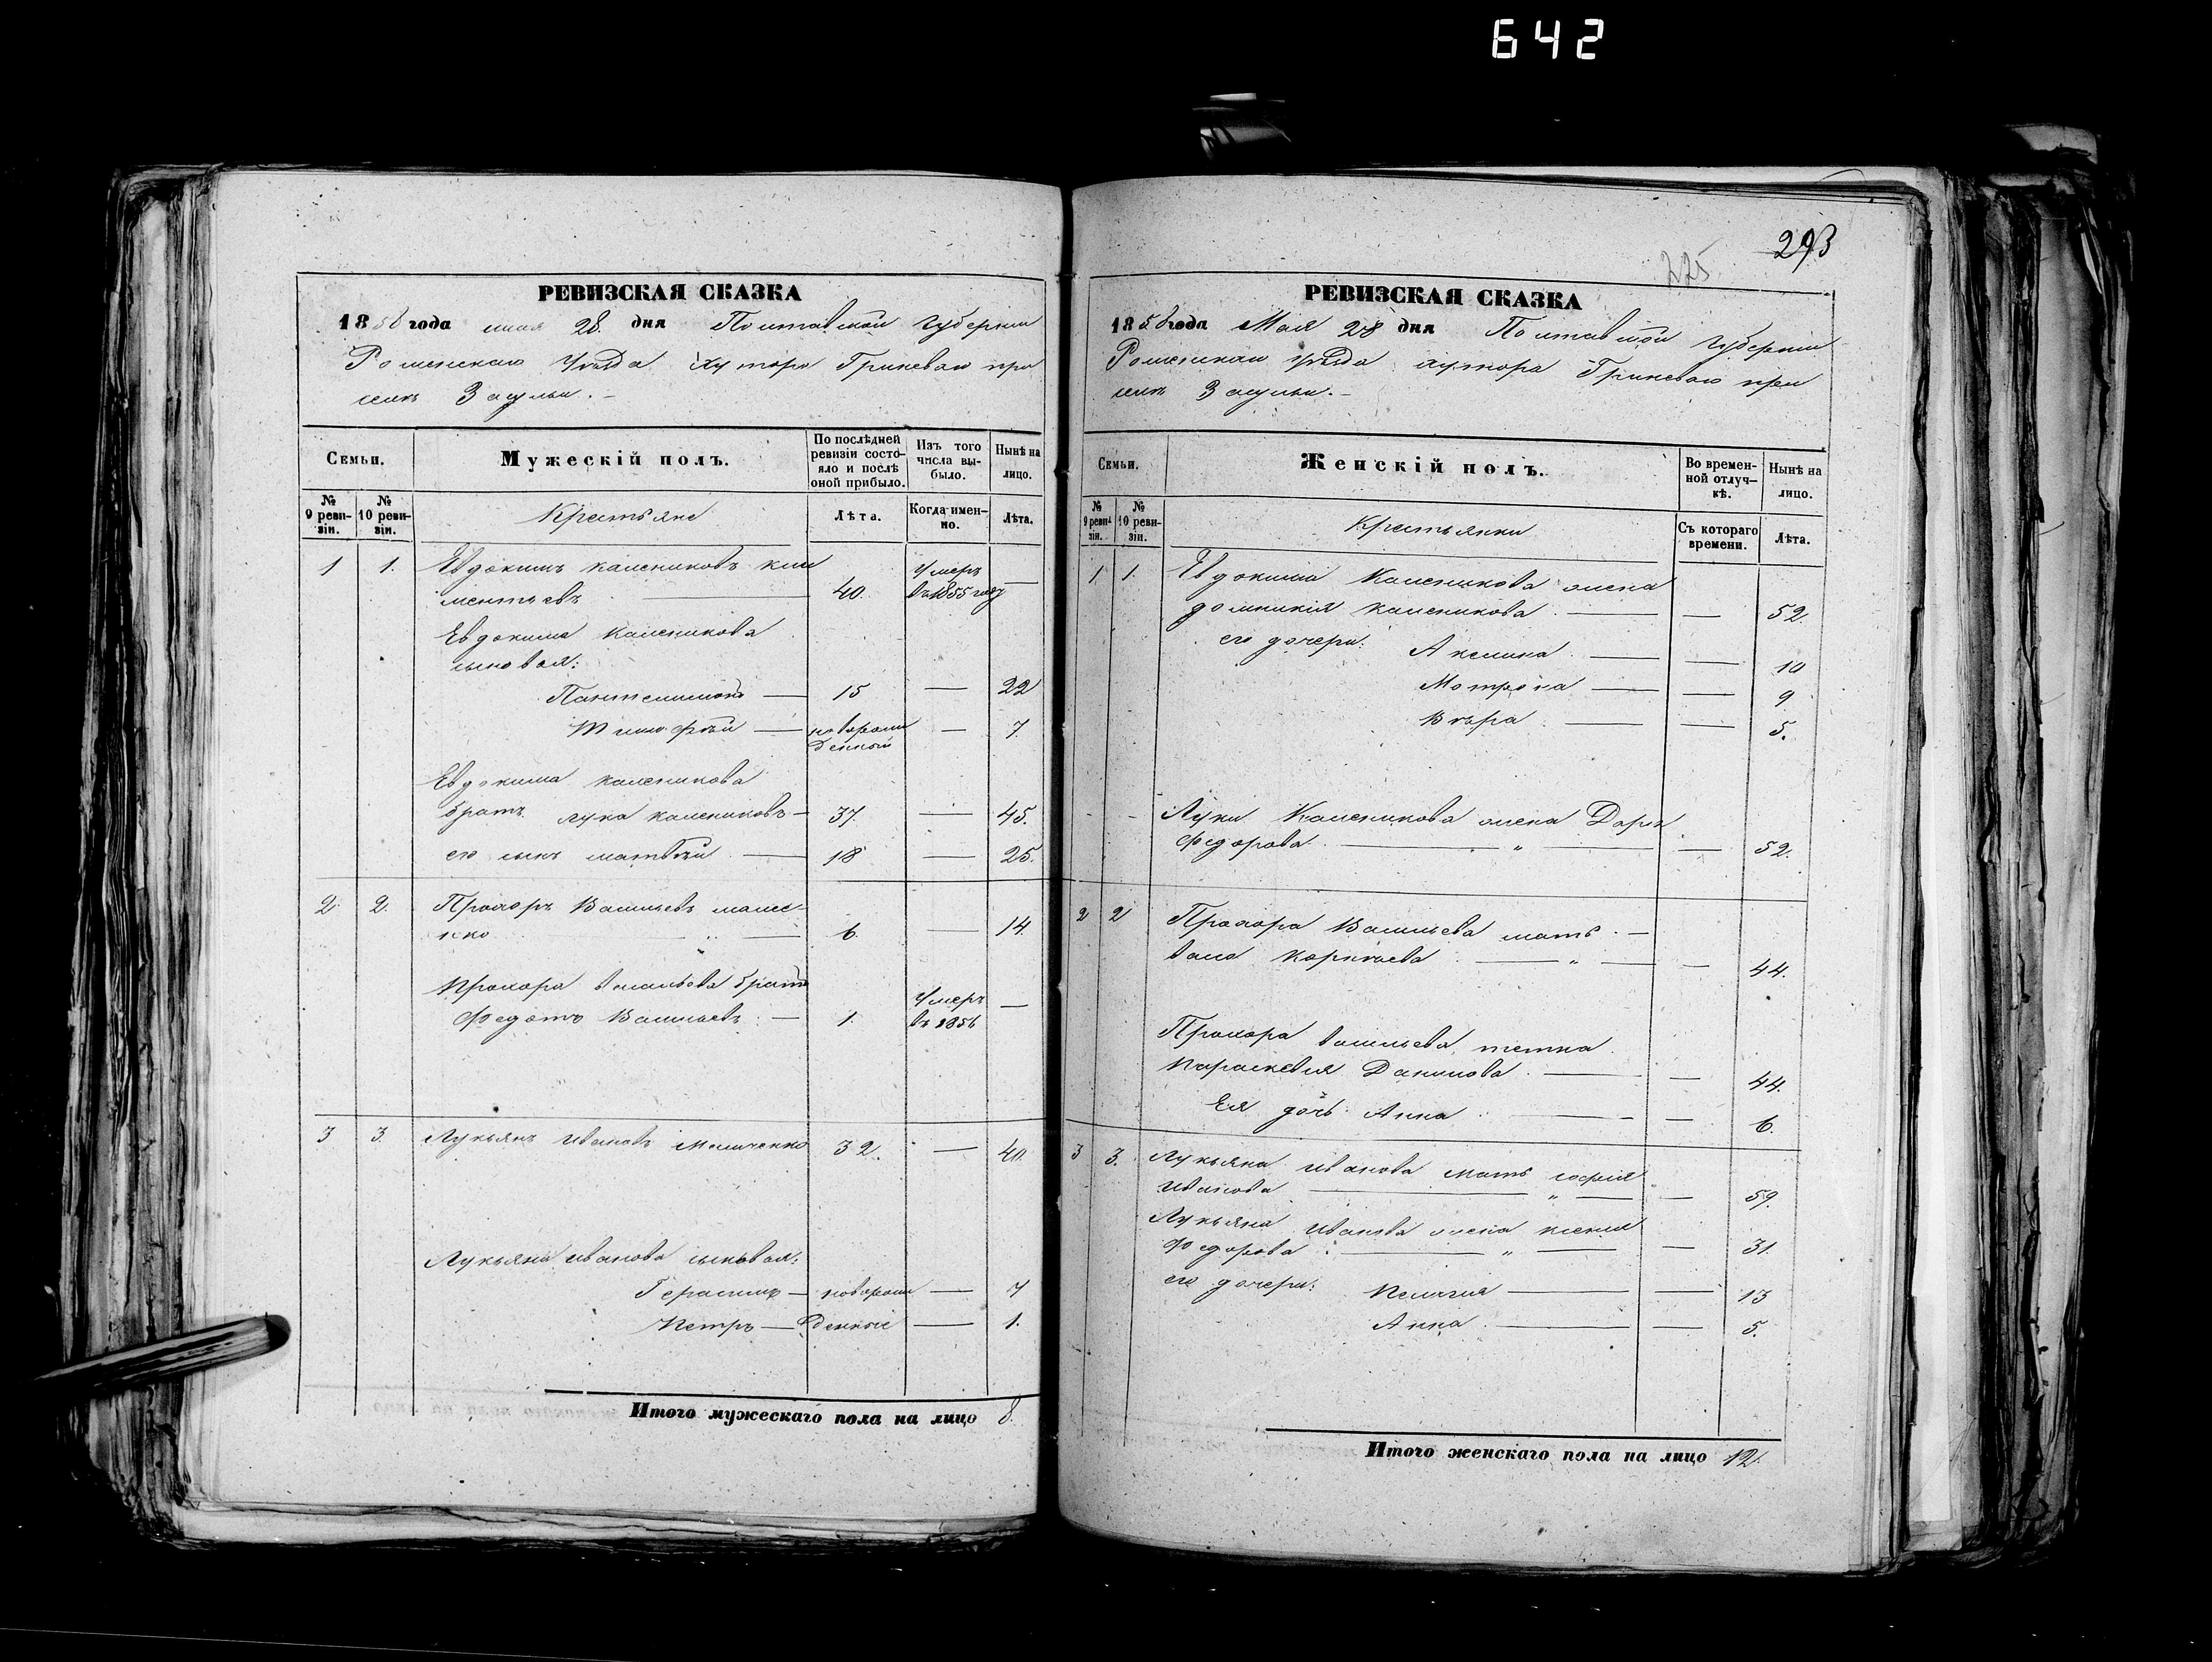 642
РЕВИЗСКАЯ СКАЗКА
1858 года мая 28 дня Полтавской Губернии
Роменскаго Уѣзда хутора Гриневаго при
селѣ Засульи.
Семьи.
Мужескій полъ.
По послѣдней ревизіи состо-
яло и послѣ оной прибыло.
Изъ того числа вы-
было.
Нынѣ на лицо.
№ 9 реви-
зіи.
№ 10 реви-
зіи.
Крестьяне
Лѣта.
Когда имен-
но.
Лѣта.
1 1. Евдокимъ Калениковъ кли
ментьевъ — 40. Умеръ въ 1855 году —
Евдокима Каленикова
сыновья:
Пантелимонъ — 15 — 22
Тимофѣй — новорож
денный — 7.
Евдокима каленикова
братъ лука калениковъ — 37. — 45.
его сынъ матвѣй — 18 — 25.
2. 2. Прохоръ Васильевъ
нко " — 6. — 14.
Прохора васильева братъ
Федотъ Васильевъ — 1. Умеръ въ 1856 —
3 3. Лукьянъ Ивановъ 32. — 40.
Лукьяна Иванова сыновья:
Герасимъ — новорож — 7
Петръ — денные — 1.
Итого мужескаго пола на лицо 8.
293
225
РЕВИЗСКАЯ СКАЗКА
1858 года Мая 28 дня Полтавской Губерніи
Роменскаго уѣзда хутора Гриневаго при
селѣ Засульи.
Семьи.
Женскій полъ.
Во времен-
ной отлуч-
кѣ.
Нынѣ на лицо.
№ 9 реви-
зіи.
№ 10 реви-
зіи.
Крестьянки
Съ котораго времени.
Лѣта.
1 1. Евдокима Каленикова жена
домникія каленикова. — — 52.
его дочери: Акелина. — — 10
Мотрона — — 9
Вѣра. — — 5.
Луки Каленикова жена Дарья
Федорова. — " — — 52.
2 2 Прохора Васильева мать. —
Корнѣева — " — — 44.
Прохора васильева тетка
Параскевія Данилова. — — 44.
Ея дочь Анна — — 6.
3 3. Лукьяна Иванова мать софія
Иванова — " — — 59.
Лукьяна Иванова жена ксенія
Федорова — " — — 31.
его дочери: Пелагія — — 13
Анна. — — 5.
Итого женскаго пола на лицо 12.